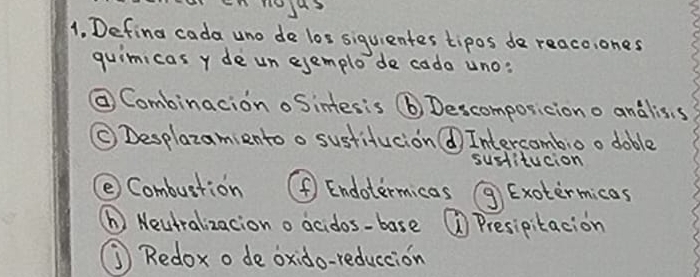 en hojas
1. Defina cada uno de los siguientes tipos de reacciones
químicas y dé un ejemplo de cada uno:
ⓐ Combinación o Síntesis ⓑ Descomposicion o análisis
ⓒ Desplazamiento o sustitución ⓓ Intercambio o doble
sustitucion
ⓔ Combustión ⓕ Endotérmicas ⓖ Exotérmicas
ⓗ Neutralizacion o ácidos-base ⓘ Presipitación
ⓙ Redox o de óxido-reducción